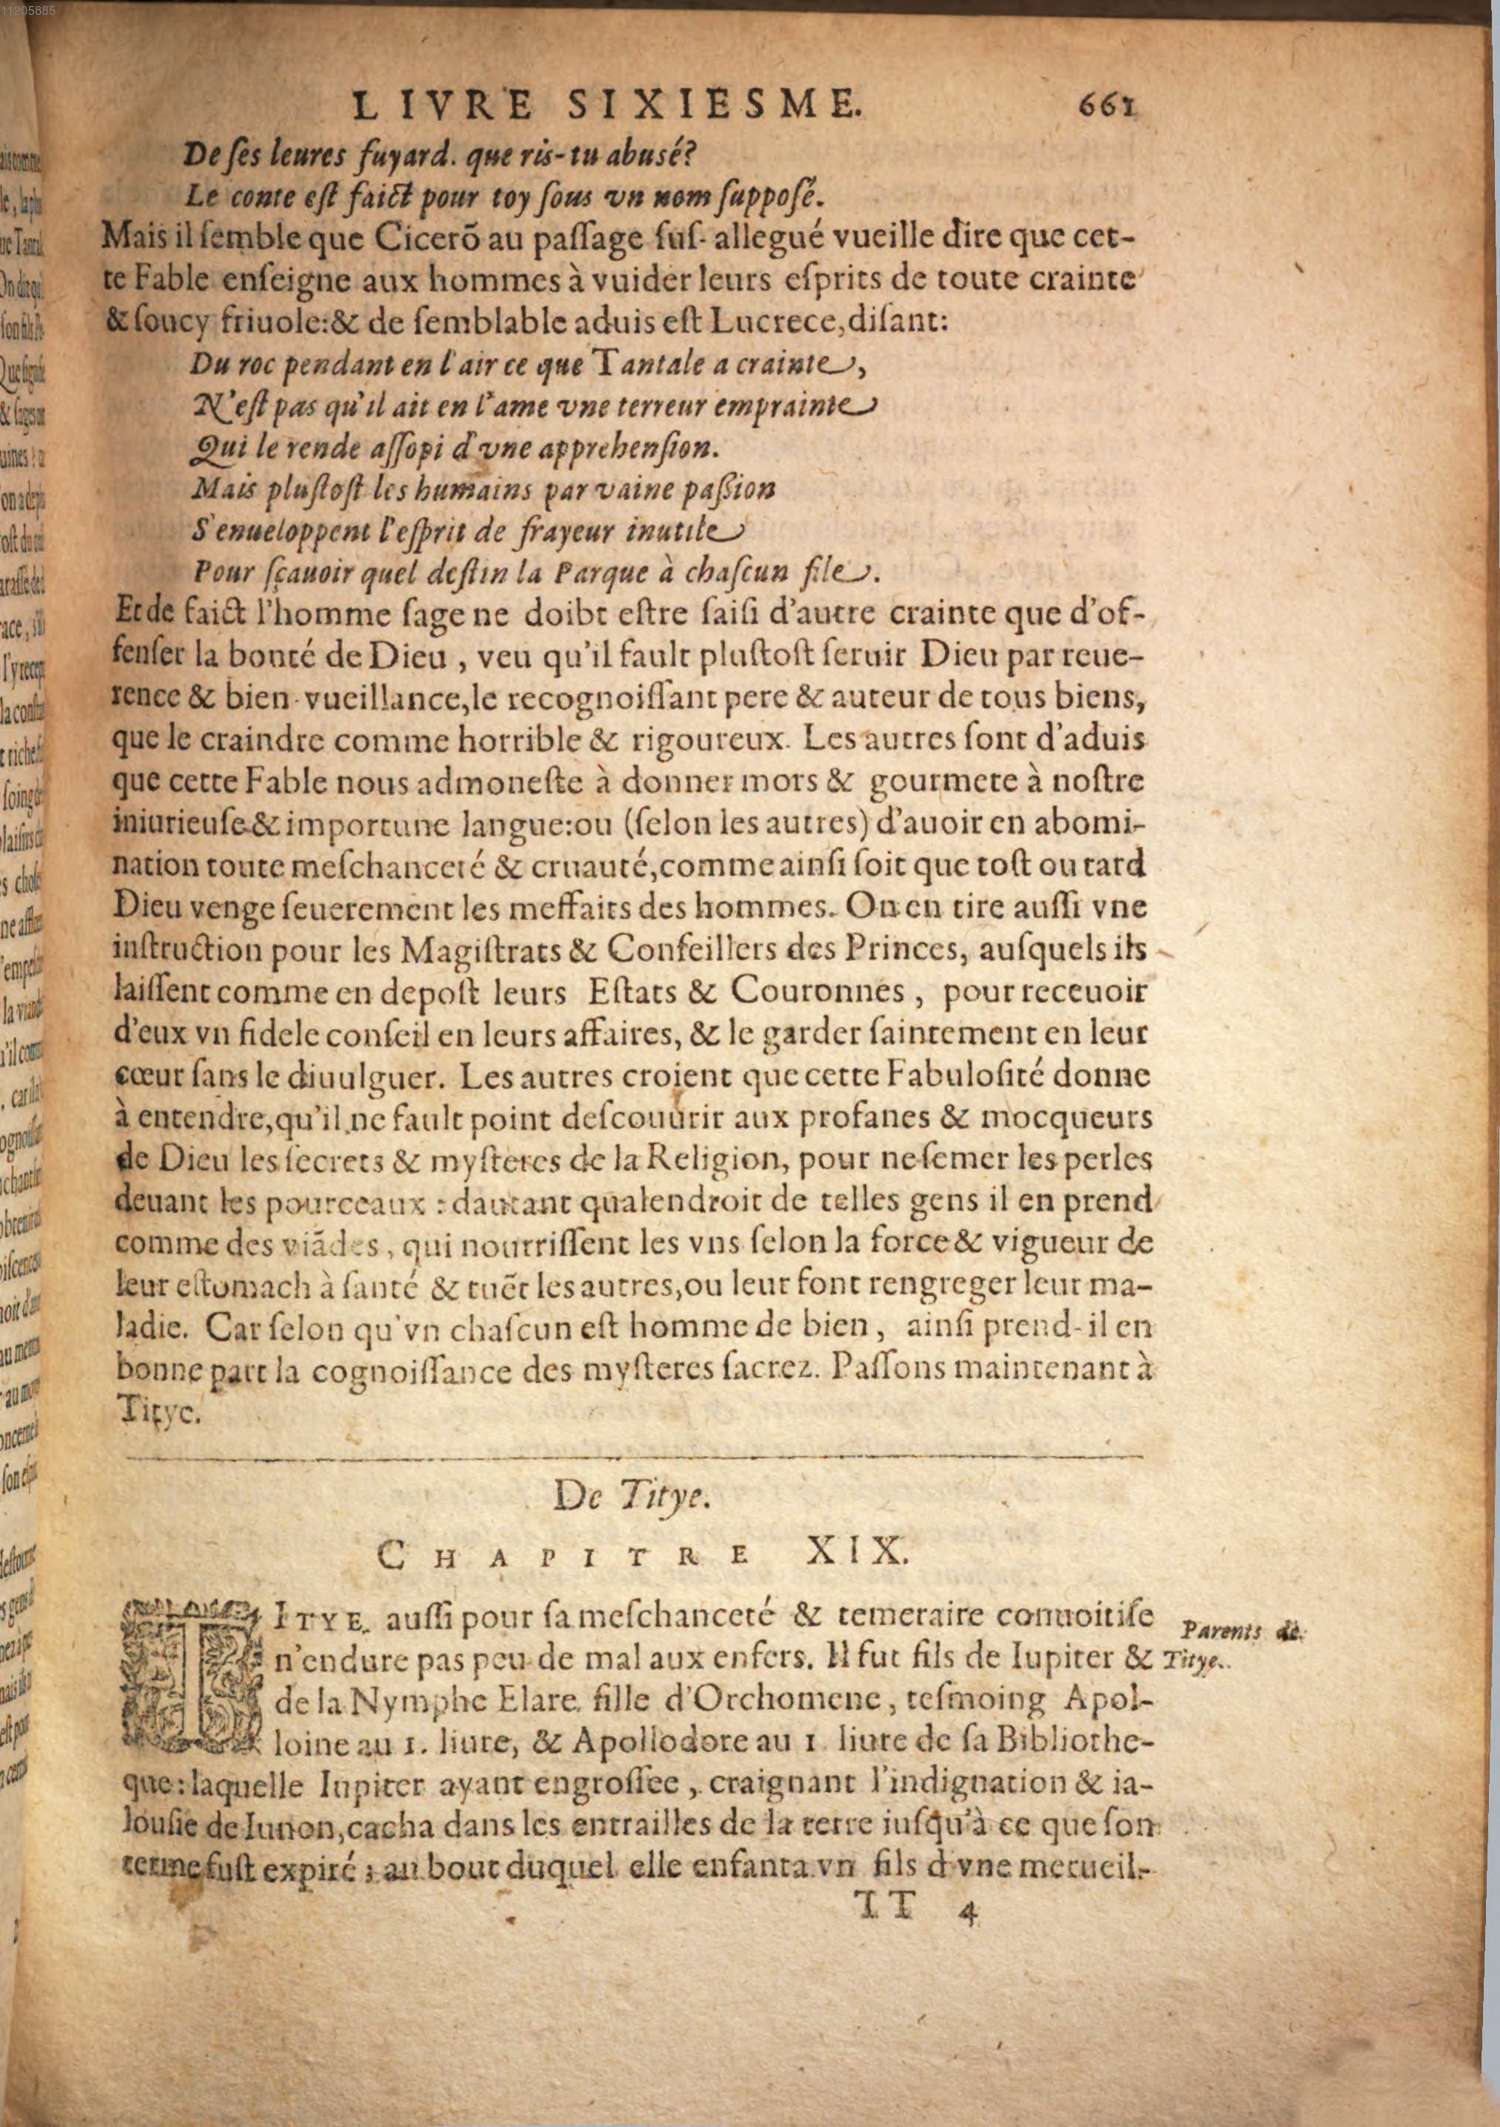 11205685
LIVRE SIXIESME. 661
De ſes leures fuyard. que ris-tu abusé?
Le conte eſt faict pour toy ſous vn nom ſuppoſé.
Mais il ſemble que Cicerõ au paſſage ſuſ-allegué vueille dire que cet-
te Fable enſeigne aux hommes à vuider leurs eſprits de toute crainte
& ſoucy friuole:& de ſemblable aduis eſt Lucrece,diſant:
Du roc pendant en l'air ce que Tantale a crainte,
N'eſt pas qu'il ait en l'ame vne terreur emprainte
Qui le rende aſſopi d'vne apprehenſion.
Mais pluſtoſt les humains par vaine paſſion
S'enueloppent l'eſprit de frayeur inutile
Pour ſçauoir quel deſtin la Parque à chaſcun file.
Et de faict l'homme ſage ne doibt eſtre ſaiſi d'autre crainte que d'of-
fenſer la bonté de Dieu , veu qu'il fault pluſtoſt ſeruir Dieu par reue-
rence & bien-vueillance,le recognoiſſant pere & auteur de tous biens,
que le craindre comme horrible & rigoureux. Les autres ſont d'aduis
que cette Fable nous admoneſte à donner mors & gourmete à noſtre
iniurieuſe & importune langue:ou (ſelon les autres) d'auoir en abomi-
nation toute meſchanceté & cruauté,comme ainſi ſoit que toſt ou tard
Dieu venge ſeuerement les meffaits des hommes. On en tire auſſi vne
inſtruction pour les Magiſtrats & Conſeillers des Princes, auſquels ils
laiſſent comme en depoſt leurs Eſtats & Couronnes , pour receuoir
d'eux vn fidele conſeil en leurs affaires, & le garder ſaintement en leur
cœur ſans le diuulguer. Les autres croient que cette Fabuloſité donne
à entendre,qu'il ne fault point deſcouurir aux profanes & mocqueurs
de Dieu les ſecrets & myſteres de la Religion, pour ne ſemer les perles
deuant les pourceaux : dautant qualendroit de telles gens il en prend
comme des viãdes , qui nourriſſent les vns ſelon la force & vigueur de
leur eſtomach à ſanté & tuẽt les autres,ou leur font rengreger leur ma-
ladie. Car ſelon qu'vn chaſcun eſt homme de bien , ainſi prend-il en
bonne part la cognoiſſance des myſteres ſacrez. Paſſons maintenant à
Titye.
De Titye.
CHAPITRE XIX.
TITYE auſſi pour ſa meſchanceté & temeraire conuoitiſe
n'endure pas peu de mal aux enfers. Il fut fils de Iupiter &
de la Nymphe Elare fille d'Orchomene, teſmoing Apol-
loine au 1. liure, & Apollodore au 1 liure de ſa Bibliothe-
que:laquelle Iupiter ayant engroſſee , craignant l'indignation & ia-
louſie de Iunon,cacha dans les entrailles de la terre iuſqu'à ce que ſon
terme fuſt expiré ; au bout duquel elle enfanta vn fils d'vne merueil-
Parents de
Titye.
TT 4